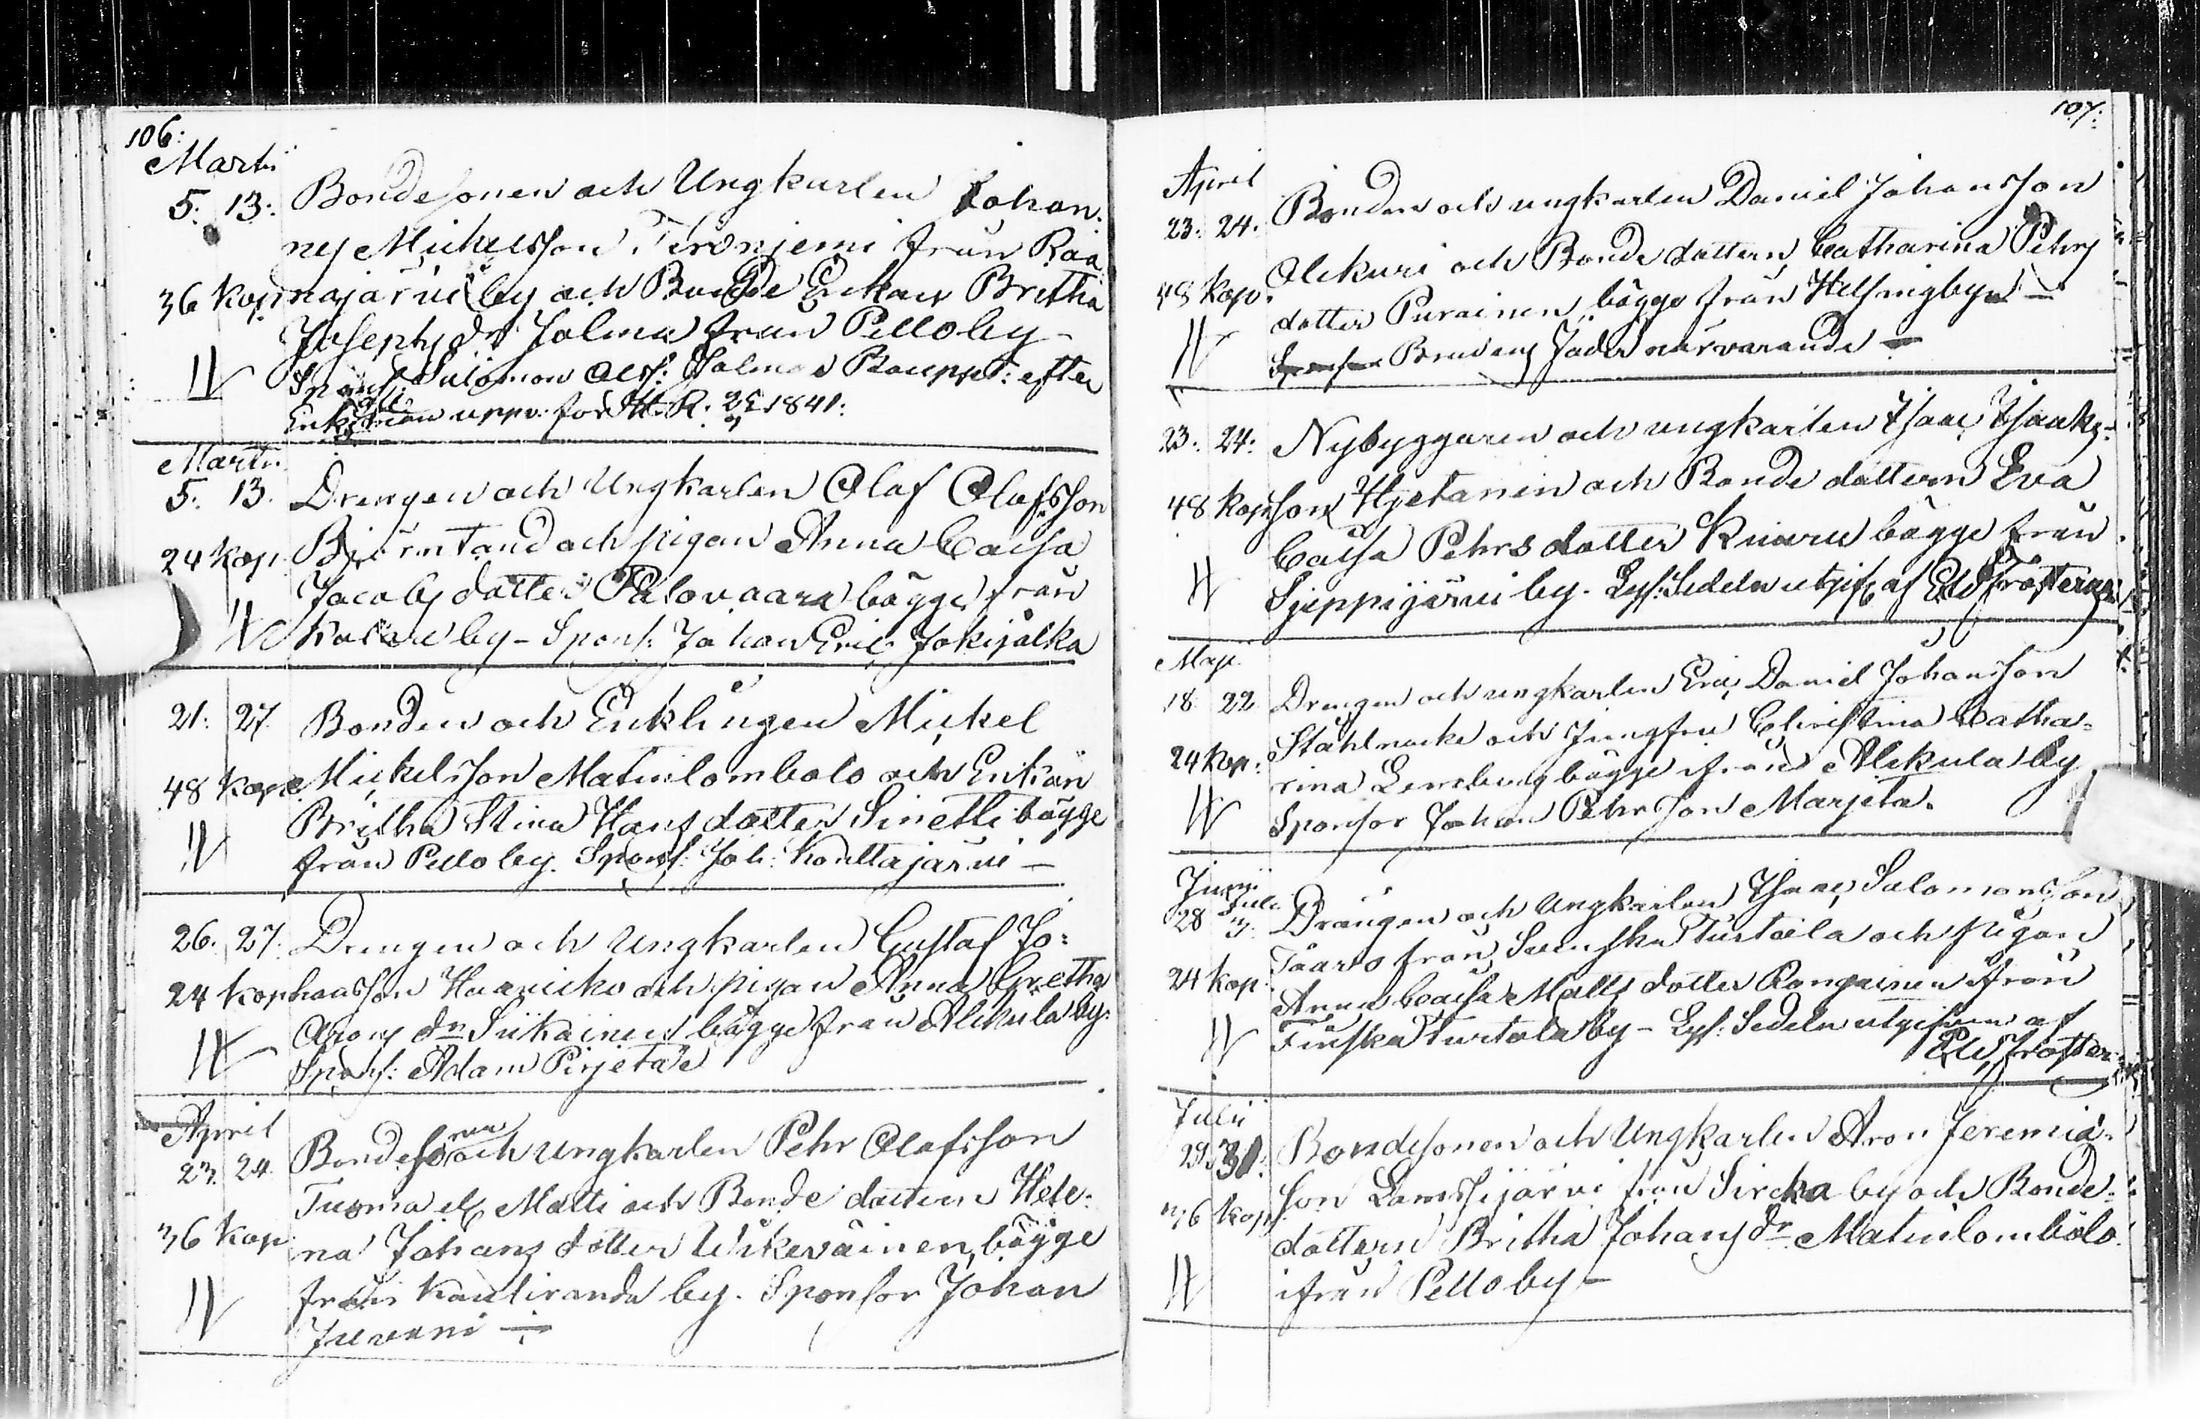 106:
Martii
5. 13. Bondesonen och Ungkarlen Johan-
nes Mickelsson Teronjemi från Raa-
36 kop najärvi by och Bonde Enkan Britha
Josephs dr Jolma från Pello by –
Spons: Salomon Olss: Jolma Bouppt: efter
Enk: man uppv: for H. R. 1841:
Martii
5. 13. Drengen och Ungkarlen Olaf Olofsson
24 kop Björntand och pigan Anna Caisa
Jacobs dotter Palovaara bägge från
Kolare by – Spons: Johan Eric Jokijalka
21: 27. Bonden och Enklingen Mickel
48 kop Mickelsson Matinlombolo och Enkan
Britha Stina Hans dotter Sinetti bägge
från Pello by. Spons: Joh: Konttajärvi –
26. 27. Drengen och Ungkarlen Gustaf Jo-
24 kop hansson och pigan Anna Gretha
Arons dr Siikainen bägge från Alkula by.
Spons: Adam Pirjeta
April
23. 24. Bondesonen och Ungkarlen Pehr Olofsson
Tuoma el Matti och Bonde dottern Hele-
36 kop na Johans dotter Wikeväinen, bägge
från Kauliranda by. Sponsor Johan
Juvani –
107:
April
23. 24. Bonden och ungkarlen Daniel Johansson
Alekuri och Bonde dottern Catharina Pehrs
48 kop. dotter Purainen, bägge från Helsingbyn –
Brudens Fader närvarande –
23. 24. Nybyggaren och ungkarlen Isaac Isaaks-
48 kop son Hjetanen och Bonde dottern Eva
Caisa Pehrs dotter Kuaru bägge från
Sjeppijärvi by. Lys: Sedeln utgif: af
Maji
18 22 Drengen och ungkarlen Eric Daniel Johansson
Stålnacke och Jungfru Christina Catha-
24 kop: rina Lemberg bägge ifrån Alkula by
Sponsor Johan Pehrsson Marjeta.
Junii Juli
28 3. Drängen och Ungkarlen Isaac Salomonsson
Taaro från Svenska Turtola och pigan
24 kop. Anna Caisa Matts dotter Kangainen från
Finska Turtola by – Lys: Sedeln utgifven af
Julii
29. 31. Bondesonen och Ungkarlen Aron Jeremia-
son Lamsijärvi från Sircka by och Bonde-
36 kop dottern Britha Johans dr Matinlombolo
ifrån Pello by –